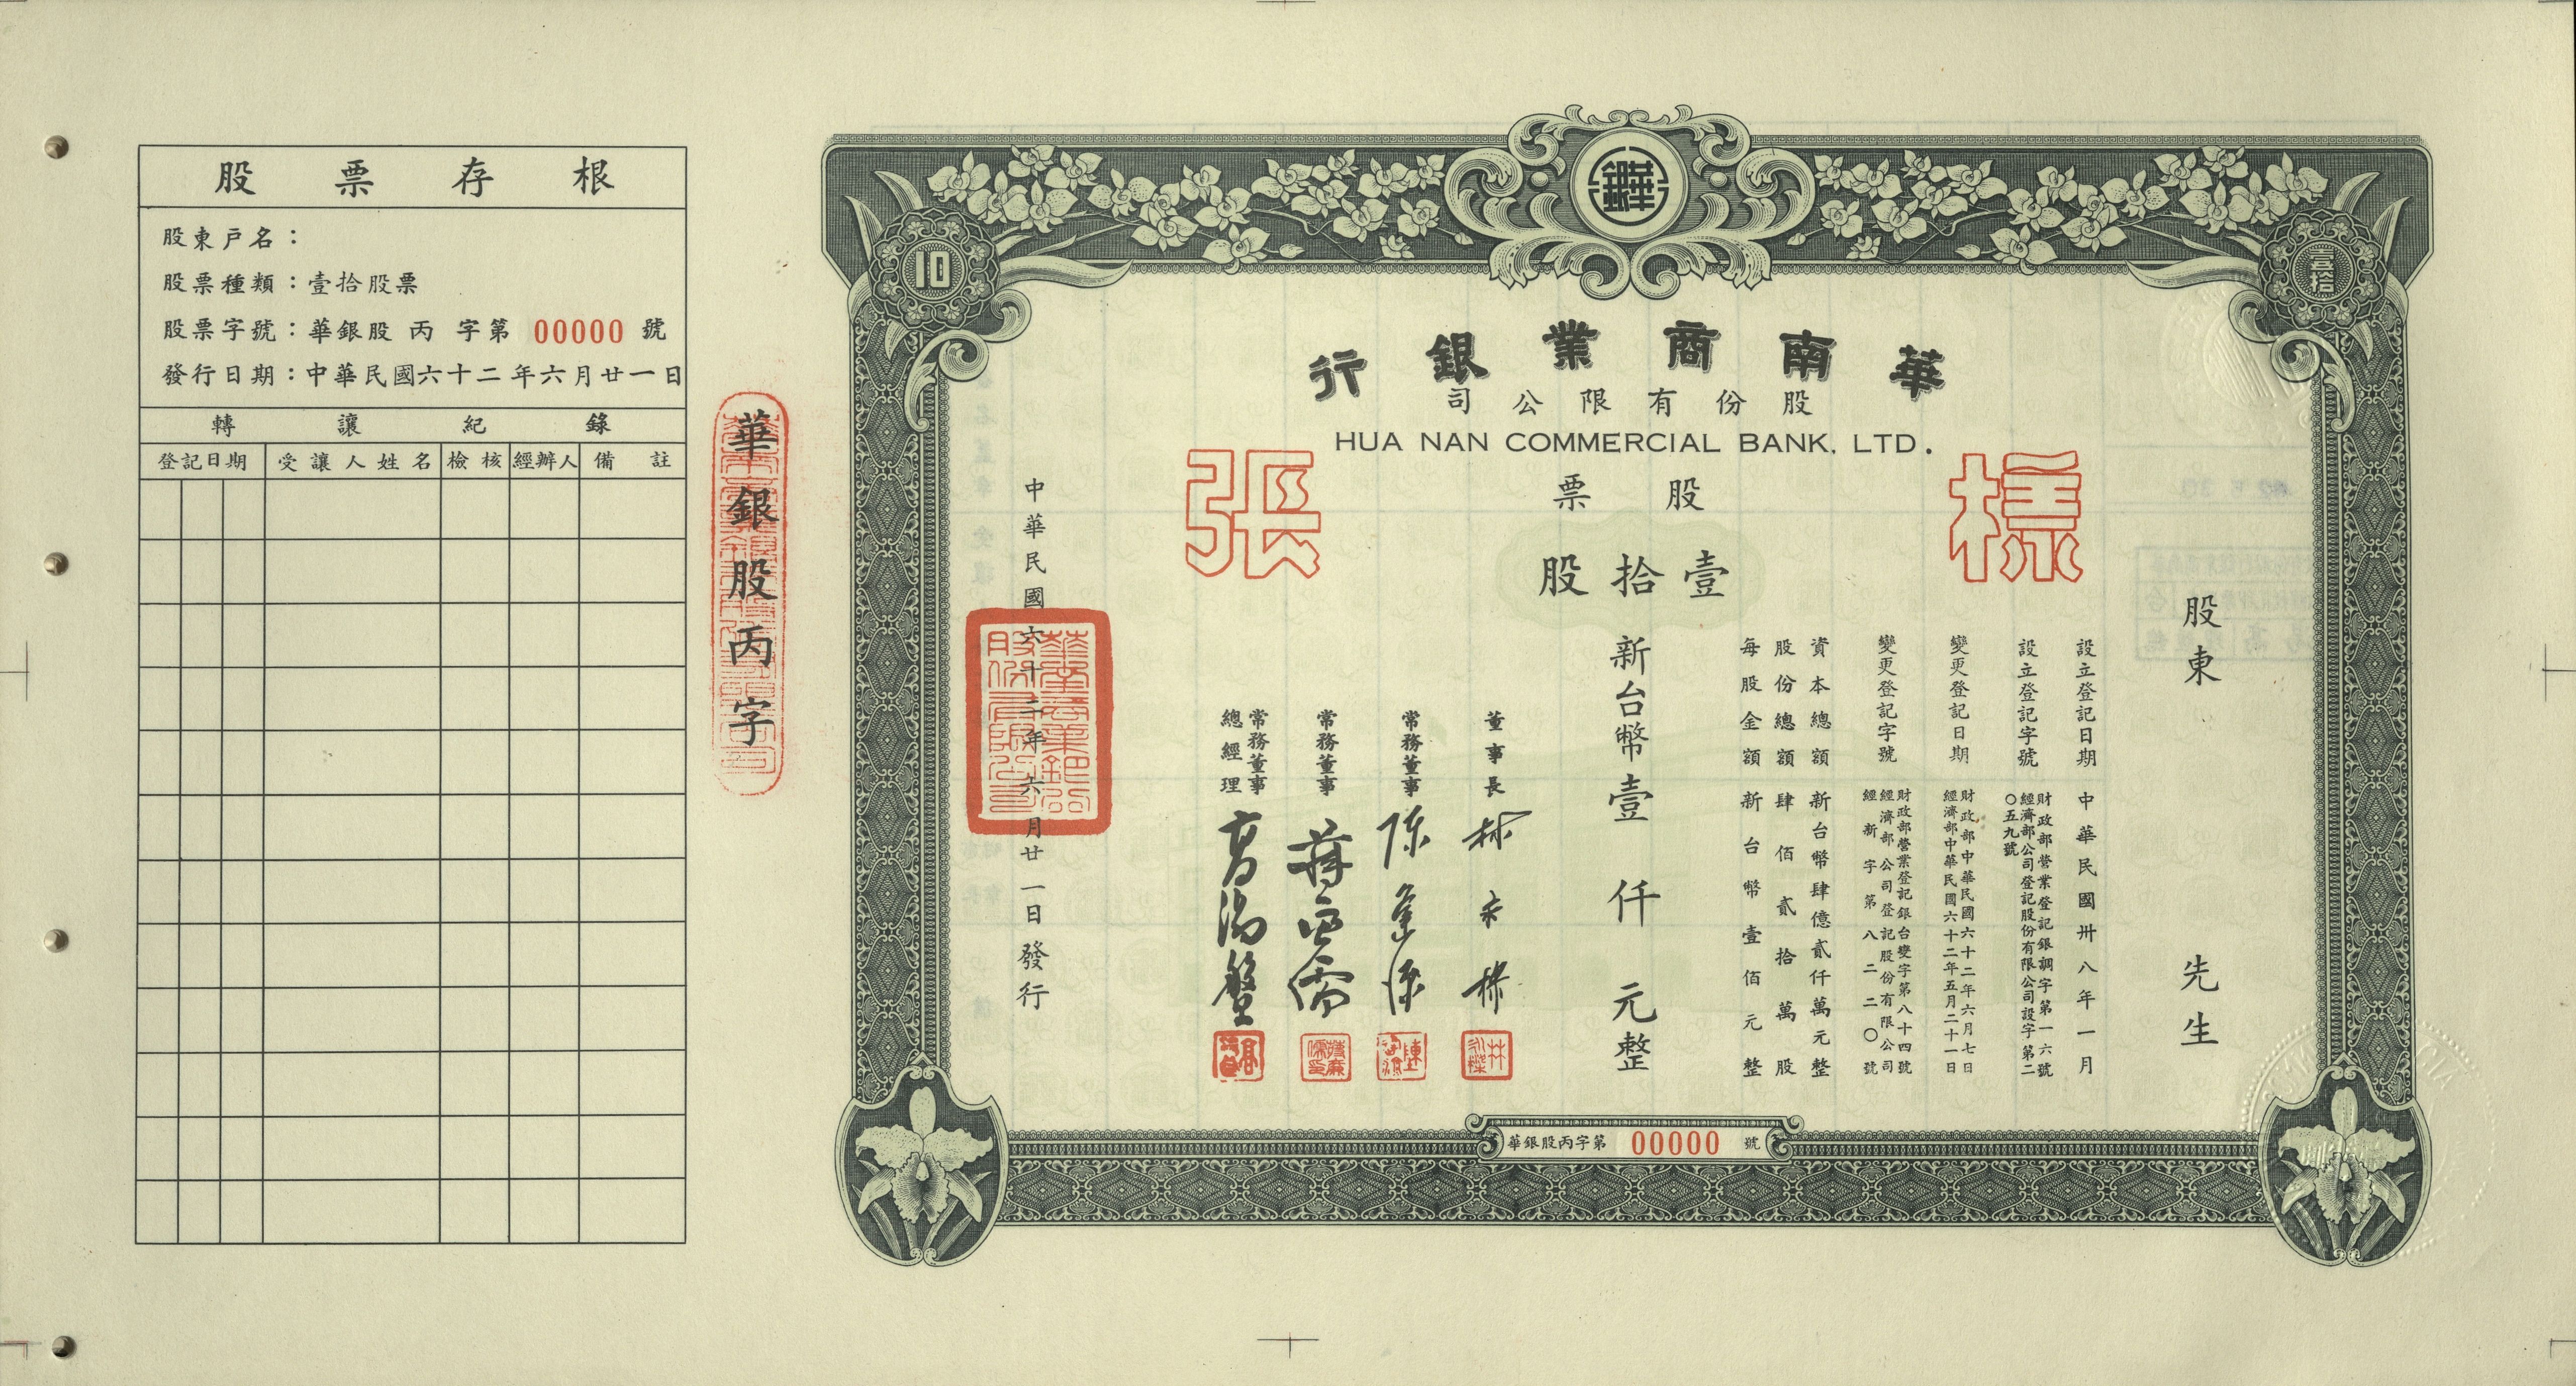 股票存根
股東戶名：
股票種類：壹拾股票
股票字號：華銀股 丙 字第 00000 號
發行日期：中華民國六十二年六月廿一日
轉讓紀錄
登記日期 受讓人姓名 檢核 經辦人 備註
華銀股丙字
10
壹拾
華銀
華南商業銀行
股份有限公司
HUA NAN COMMERCIAL BANK, LTD.
樣張
股票
壹拾股
股東 先生
設立登記日期 中華民國卅八年一月
設立登記字號 財政部營業登記銀調字第一六號
經濟部公司登記股份有限公司設字第二
〇五九號
變更登記日期 財政部中華民國六十二年六月七日
經濟部中華民國六十二年五月二十一日
變更登記字號 財政部營業登記銀台變字第八十四號
經濟部公司登記股份有限公司
經新字第八二二〇號
資本總額 新台幣肆億貳仟萬元整
股份總額 肆佰貳拾萬股
每股金額 新台幣壹佰元整
新台幣壹仟元整
董事長
常務董事
常務董事
常務董事
總經理
中華民國六十二年六月廿一日發行
華銀股丙字第 00000 號